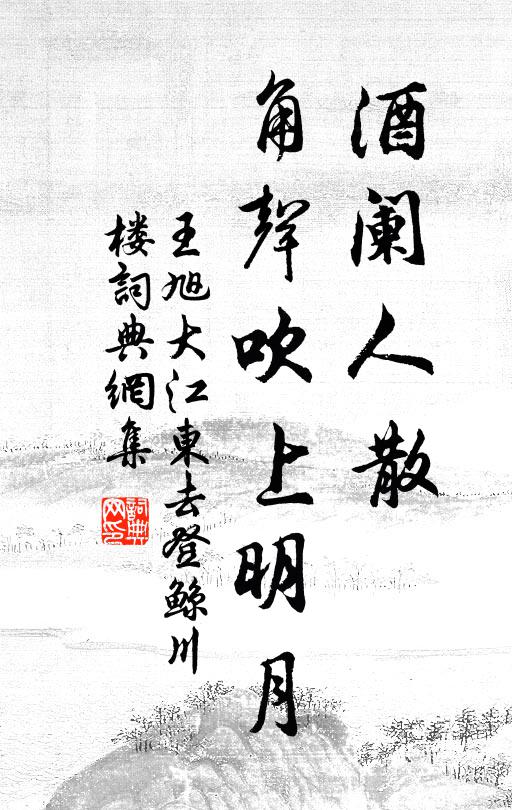 酒阑人散
角聲吹上明月
王旭大江東去登鲸川
楼詞典網集
詞典
网印